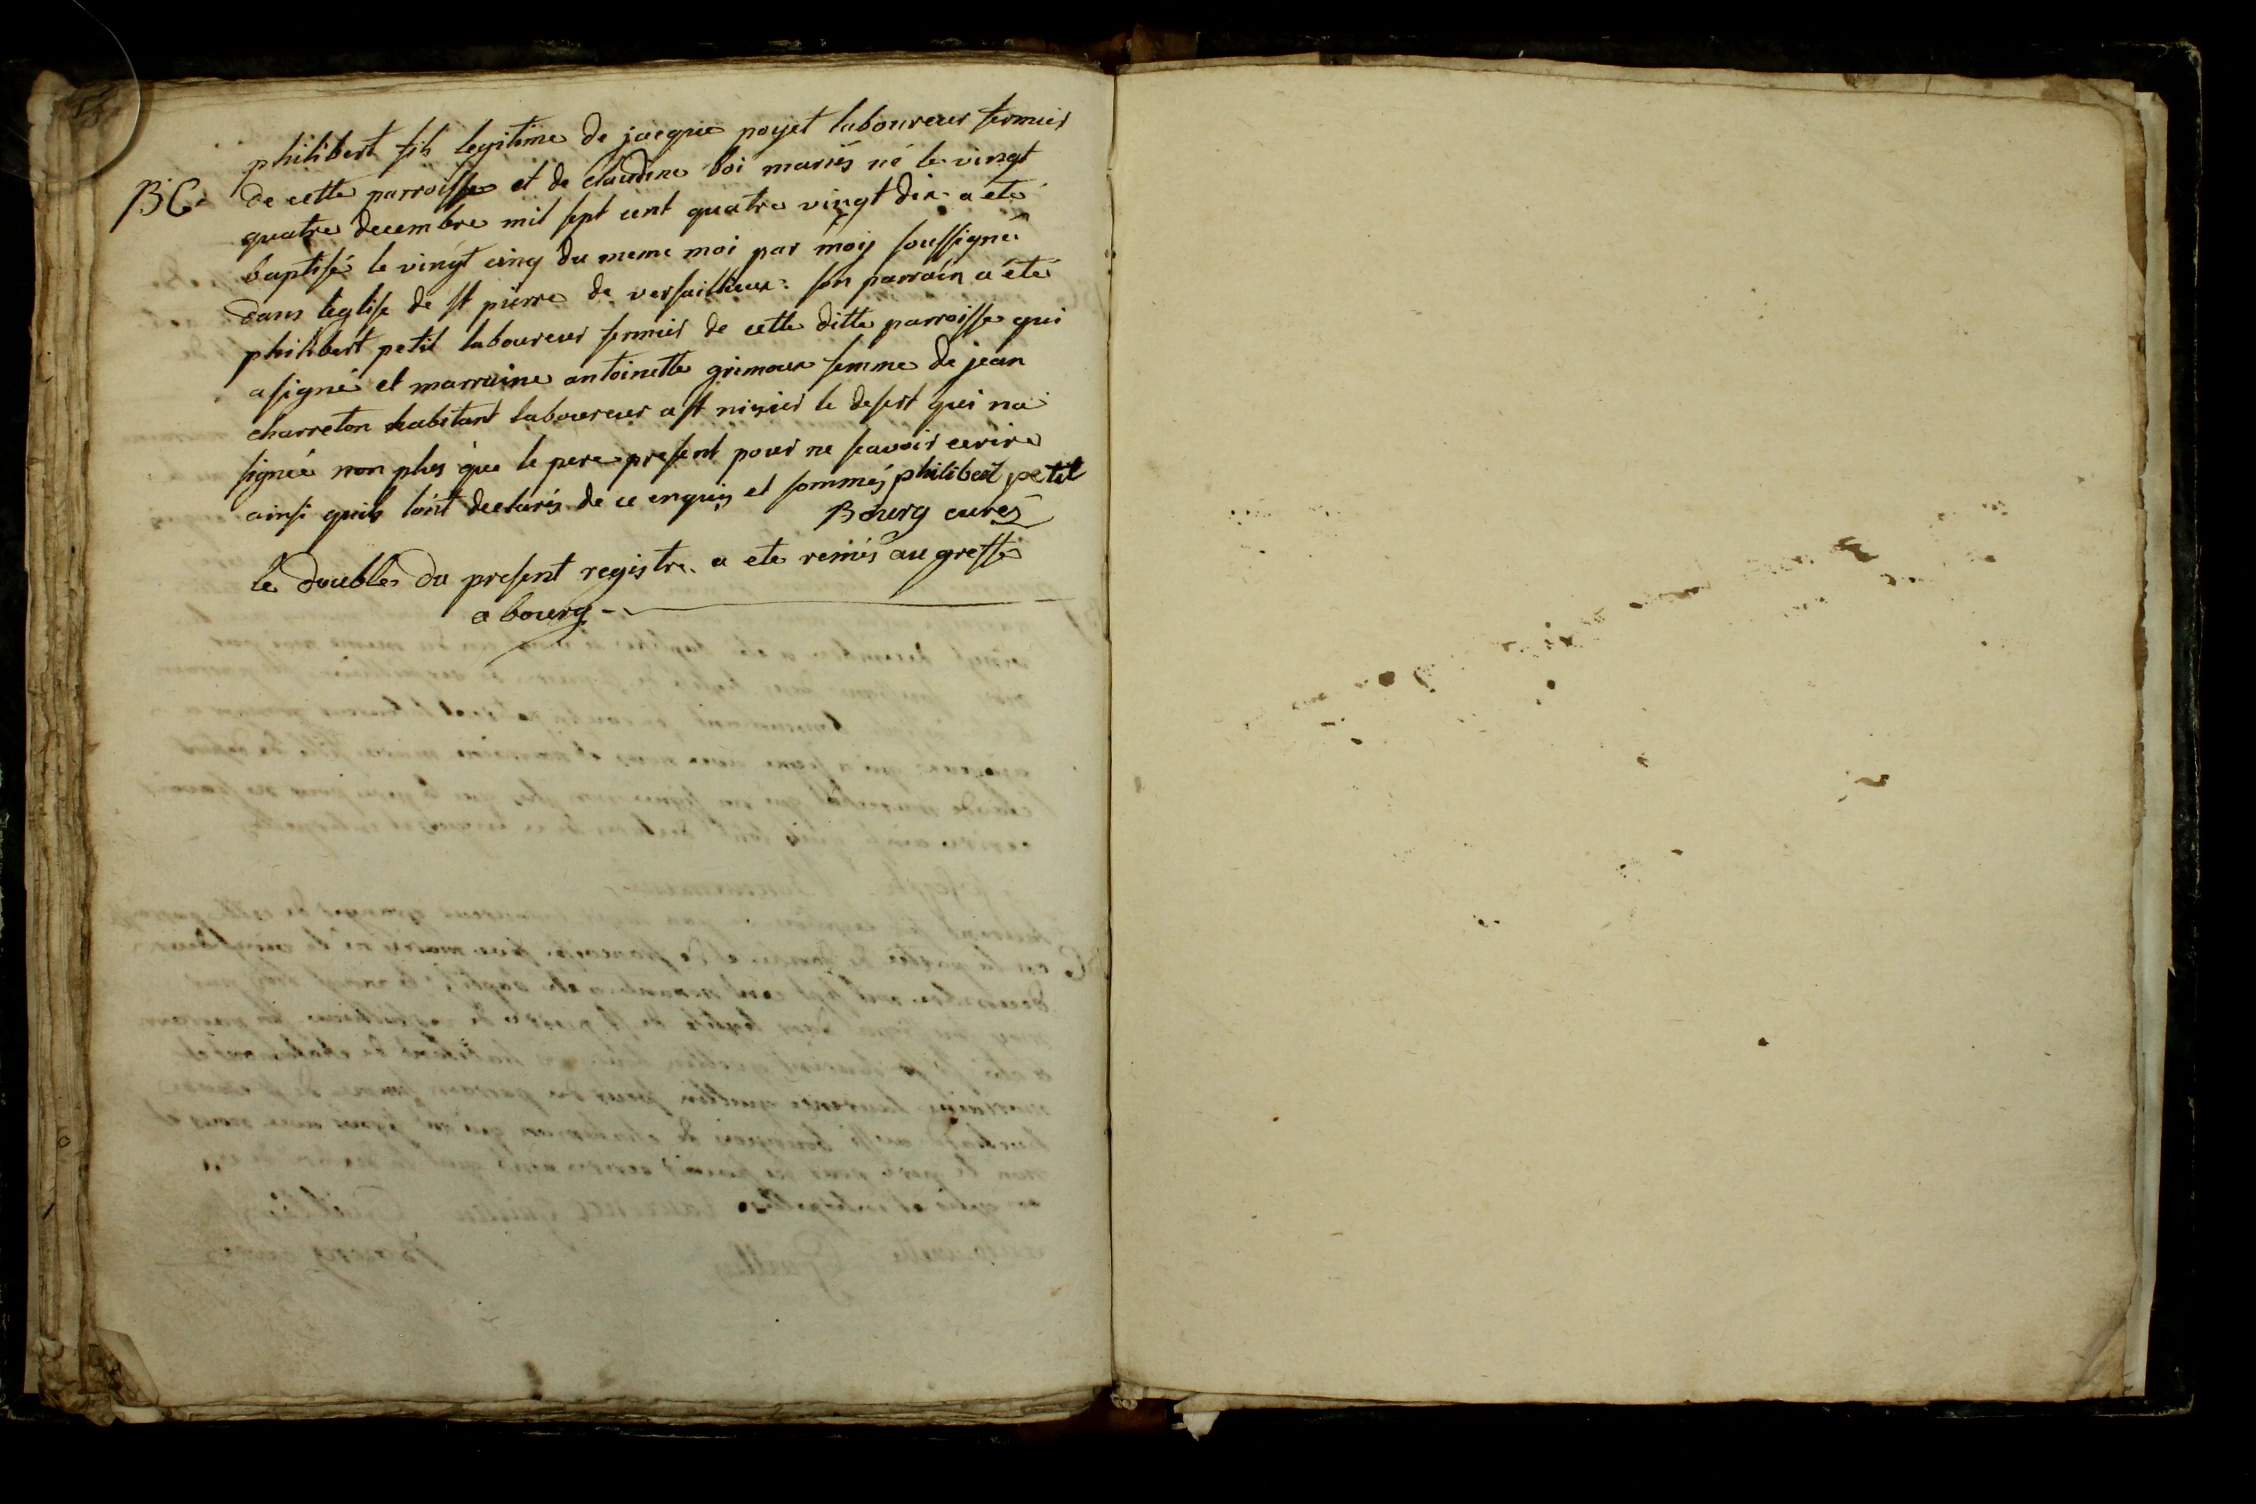 philibert fils legitime de jacque poyet laboureur fermier
BC. de cette parroisse et de claudine boi mariés né le vingt
quatre decembre mil sept cent quatre vingt dix a ete
baptisé le vingt cinq du meme moi par moy soussigné
dans l'eglise de st pierre de versaillieux. son parrain a été
philibert petit laboureur fermier de cette ditte parroisse qui
a signé et marraine antoinette grimoux femme de jean
charreton habitant laboureur a st nizier le desert qui na
signée non plus que le pere present pour ne scavoir ecrire
ainsi quils l'ont declarés de ce enquis et sommés philibert petit
Bourg curé
le double du present registre a ete remis au greffe
a bourg